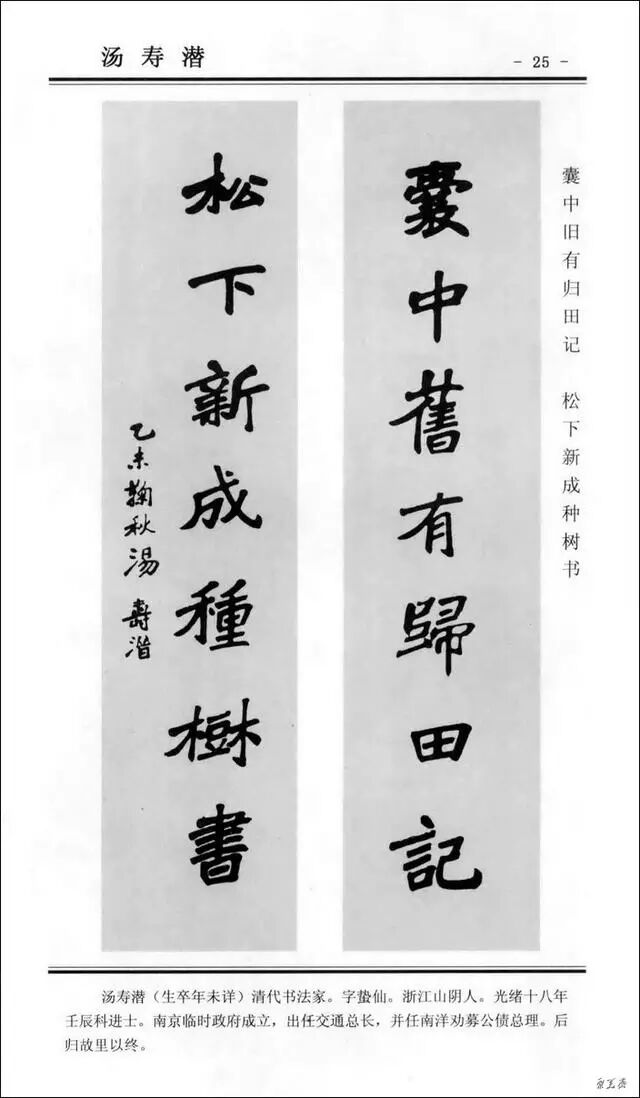 汤寿潜
- 25 -
囊中旧有归田记 松下新成种树书
囊中舊有歸田記
松下新成種樹書
乙未鞠秋湯壽潛
汤寿潜（生卒年未详）清代书法家。字蛰仙。浙江山阴人。光绪十八年
壬辰科进士。南京临时政府成立，出任交通总长，并任南洋劝募公债总理。后
归故里以终。